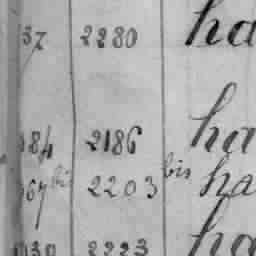 37 2280 ha
84 2186 ha
67 bis 2203 bis ha
030 2223 ha